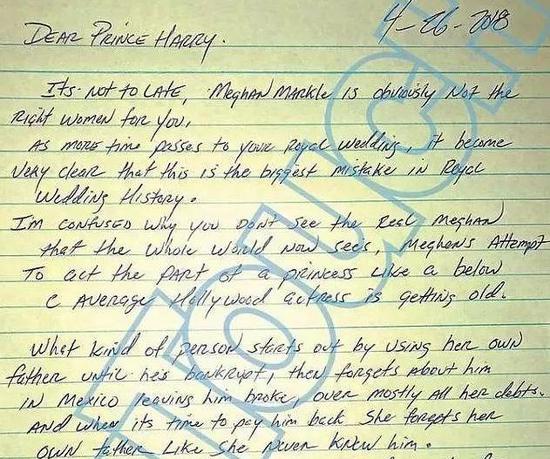 4-26-2018
DEAR PRINCE HARRY.
Its not to LATE, Meghan MARKle is obviously Not the
Right women for you,
As more time passes to your Royal wedding, it become
Very clear that this is the biggest mistake in Royal
Wedding History.
I'm confused why you don't see the Real Meghan
that the whole world now sees, Meghens Attempt
To act the PART of a princess Like a below
C Average Hollywood actress is getting old.
What kind of person starts out by using her own
father until he's bankrupt, then forgets about him
in Mexico leaving him broke, over mostly all her debts.
And when its time to pay him back She forgets her
own father Like She never knew him.
Touch